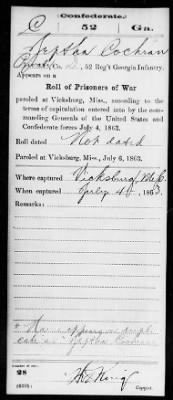 Confederate.
C 52 Ga.
Jeptha Cochran
Private, Co. D, 52 Reg't Georgia Infantry.
Appears on a
Roll of Prisoners of War
paroled at Vicksburg, Miss., according to the
terms of capitulation entered into by the com-
manding Generals of the United States and
Confederate forces July 4, 1863.
Roll dated Not dated
Paroled at Vicksburg, Miss., July 6, 1863.
Where captured Vicksburg, Miss.
When captured July 4, 1863.
Remarks:
* Name appears in dupli-
cate as Jeptha Cochran
Number of roll:
28
Copyist.